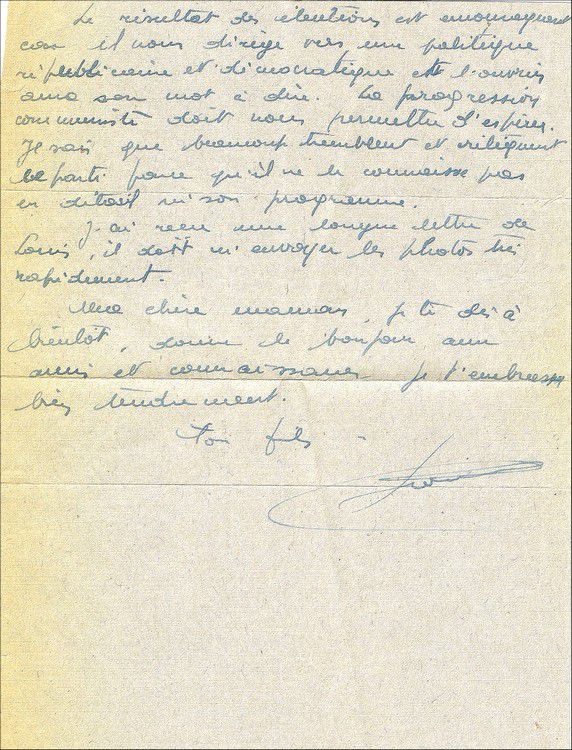 Le résultat des élections est encourageant
car il nous dirige vers une politique
républicaine et démocratique et l'ouvrier
aura son mot à dire. La progression
communiste doit nous permettre d'espérer.
Je sais que beaucoup tremblent et critiquent
le parti parce qu'il ne le connaisse pas
en détail ni son programme.
J'ai reçu une longue lettre de
Louis, il doit m'envoyer les photos très
rapidement.
Ma chère maman, je te dis à
bientôt, donne le bonjour aux
amis et connaissances je t'embrasse
bien tendrement.
Ton fils